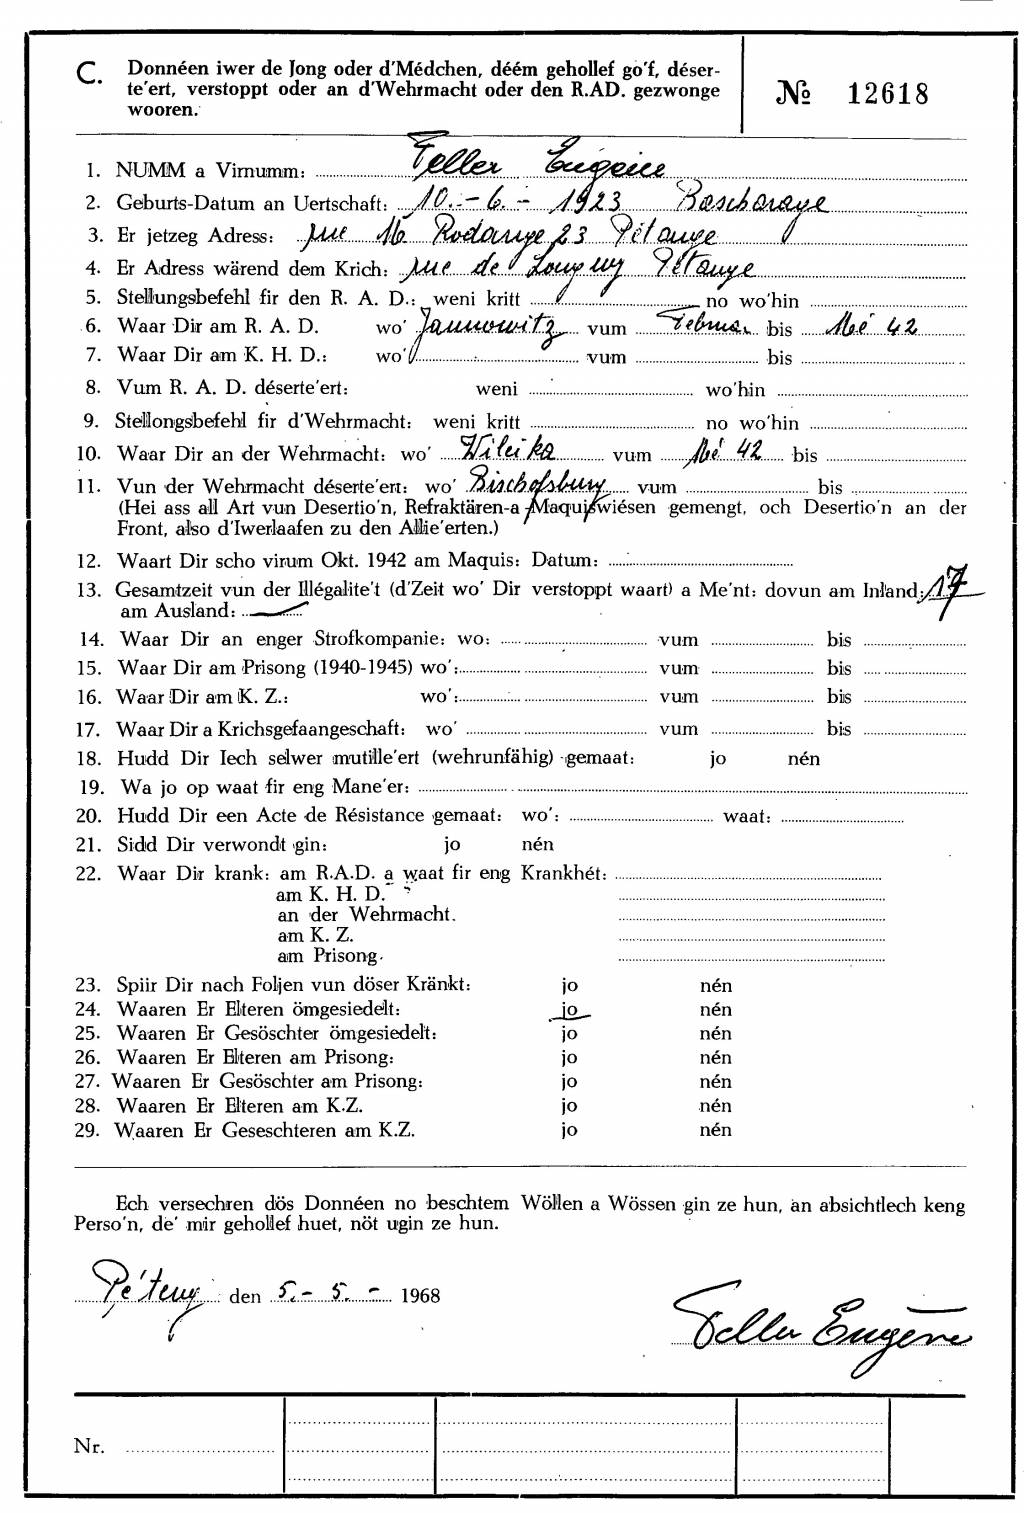 C. Donnéen iwer de Jong oder d'Médchen, déém gehollef go'f, déser-
te'ert, verstoppt oder an d'Wehrmacht oder den R.AD. gezwonge
wooren.
№ 12618
1. NUMM a Virnumm: Feller Eugène
2. Geburts-Datum an Uertschaft: 10.-6.- 1923 Bascharage
3. Er jetzeg Adress: rue de Rodange 23 Pétange
4. Er Adress wärend dem Krich: rue de Longwy Pétange
5. Stellungsbefehl fir den R. A. D.: weni kritt no wo'hin
6. Waar Dir am R. A. D. wo' Jannowitz vum Februar bis Mé 42
7. Waar Dir am K. H. D.: wo' vum bis
8. Vum R. A. D. déserte'ert: weni wo'hin
9. Stellongsbefehl fir d'Wehrmacht: weni kritt no wo'hin
10. Waar Dir an der Wehrmacht: wo' Wileika vum Mé 42 bis
11. Vun der Wehrmacht déserte'ert: wo' Bischofsburg vum bis
(Hei ass all Art vun Desertio'n, Refraktären-a Maquiswiésen gemengt, och Desertio'n an der
Front, also d'Iwerlaafen zu den Allie'erten.)
12. Waart Dir scho virum Okt. 1942 am Maquis: Datum:
13. Gesamtzeit vun der Illégalite't (d'Zeit wo' Dir verstoppt waart) a Me'nt: dovun am Inland: 17
am Ausland: —
14. Waar Dir an enger Strofkompanie: wo: vum bis
15. Waar Dir am Prisong (1940-1945) wo': vum bis
16. Waar Dir am K. Z.: wo': vum bis
17. Waar Dir a Krichsgefaangeschaft: wo' vum bis
18. Hudd Dir Iech selwer mutille'ert (wehrunfähig) gemaat: jo nén
19. Wa jo op waat fir eng Mane'er:
20. Hudd Dir een Acte de Résistance gemaat: wo': waat:
21. Sidd Dir verwondt gin: jo nén
22. Waar Dir krank: am R.A.D. a waat fir eng Krankhét:
am K. H. D.
an der Wehrmacht.
am K. Z.
am Prisong.
23. Spiir Dir nach Foljen vun döser Kränkt: jo nén
24. Waaren Er Elteren ömgesiedelt: jo nén
25. Waaren Er Gesöschter ömgesiedelt: jo nén
26. Waaren Er Elteren am Prisong: jo nén
27. Waaren Er Gesöschter am Prisong: jo nén
28. Waaren Er Elteren am K.Z. jo nén
29. Waaren Er Geseschteren am K.Z. jo nén
Ech versechren dös Donnéen no beschtem Wöllen a Wössen gin ze hun, an absichtlech keng
Perso'n, de' mir gehollef huet, nöt ugin ze hun.
Péteng den 5.- 5.- 1968
Feller Eugène
Nr.